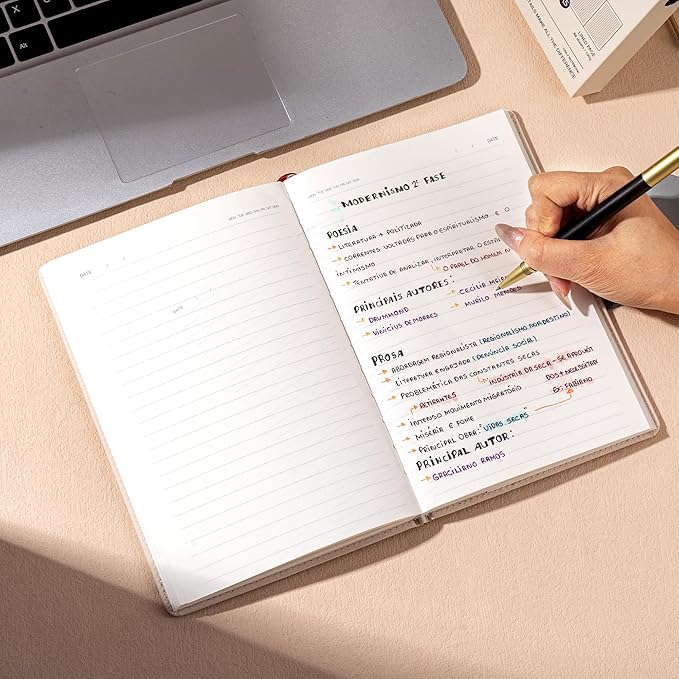 Alt
DETAILS MAKE ALL THE DIFFERENCE
DATE
MON TUE WED THU FRI SAT SUN
MON TUE WED THU FRI SAT SUN
DATE
MODERNISMO 2ª FASE
POESIA
→ LITERATURA + POLITIZADA
→ CORRENTES VOLTADAS PARA O ESPIRITUALISMO E O
INTIMISMO
→ TENTATIVA DE ANALIZAR, INTERPRETAR O
→ O PAPEL DO HOMEM N
PRINCIPAIS AUTORES:
→ DRUMMOND → CECILIA
→ VINICIUS DE MORAES → MURILO MENDES
PROSA
→ ABORDAGEM REGIONALISTA (REGIONALISMO NORDESTINO)
→ LITERATURA ENGAJADA (DENÚNCIA SOCIAL)
→ PROBLEMÁTICA DAS CONSTANTES SECAS
→ RETIRANTES → INDÚSTRIA DA SECA - SE
→ INTENSO MOVIMENTO MIGRATÓRIO
→ MISÉRIA E FOME EX: FABIANO
→ PRINCIPAL OBRA: "VIDAS SECAS"
PRINCIPAL AUTOR:
→ GRACILIANO RAMOS